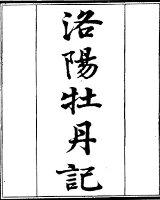 洛陽牡丹記